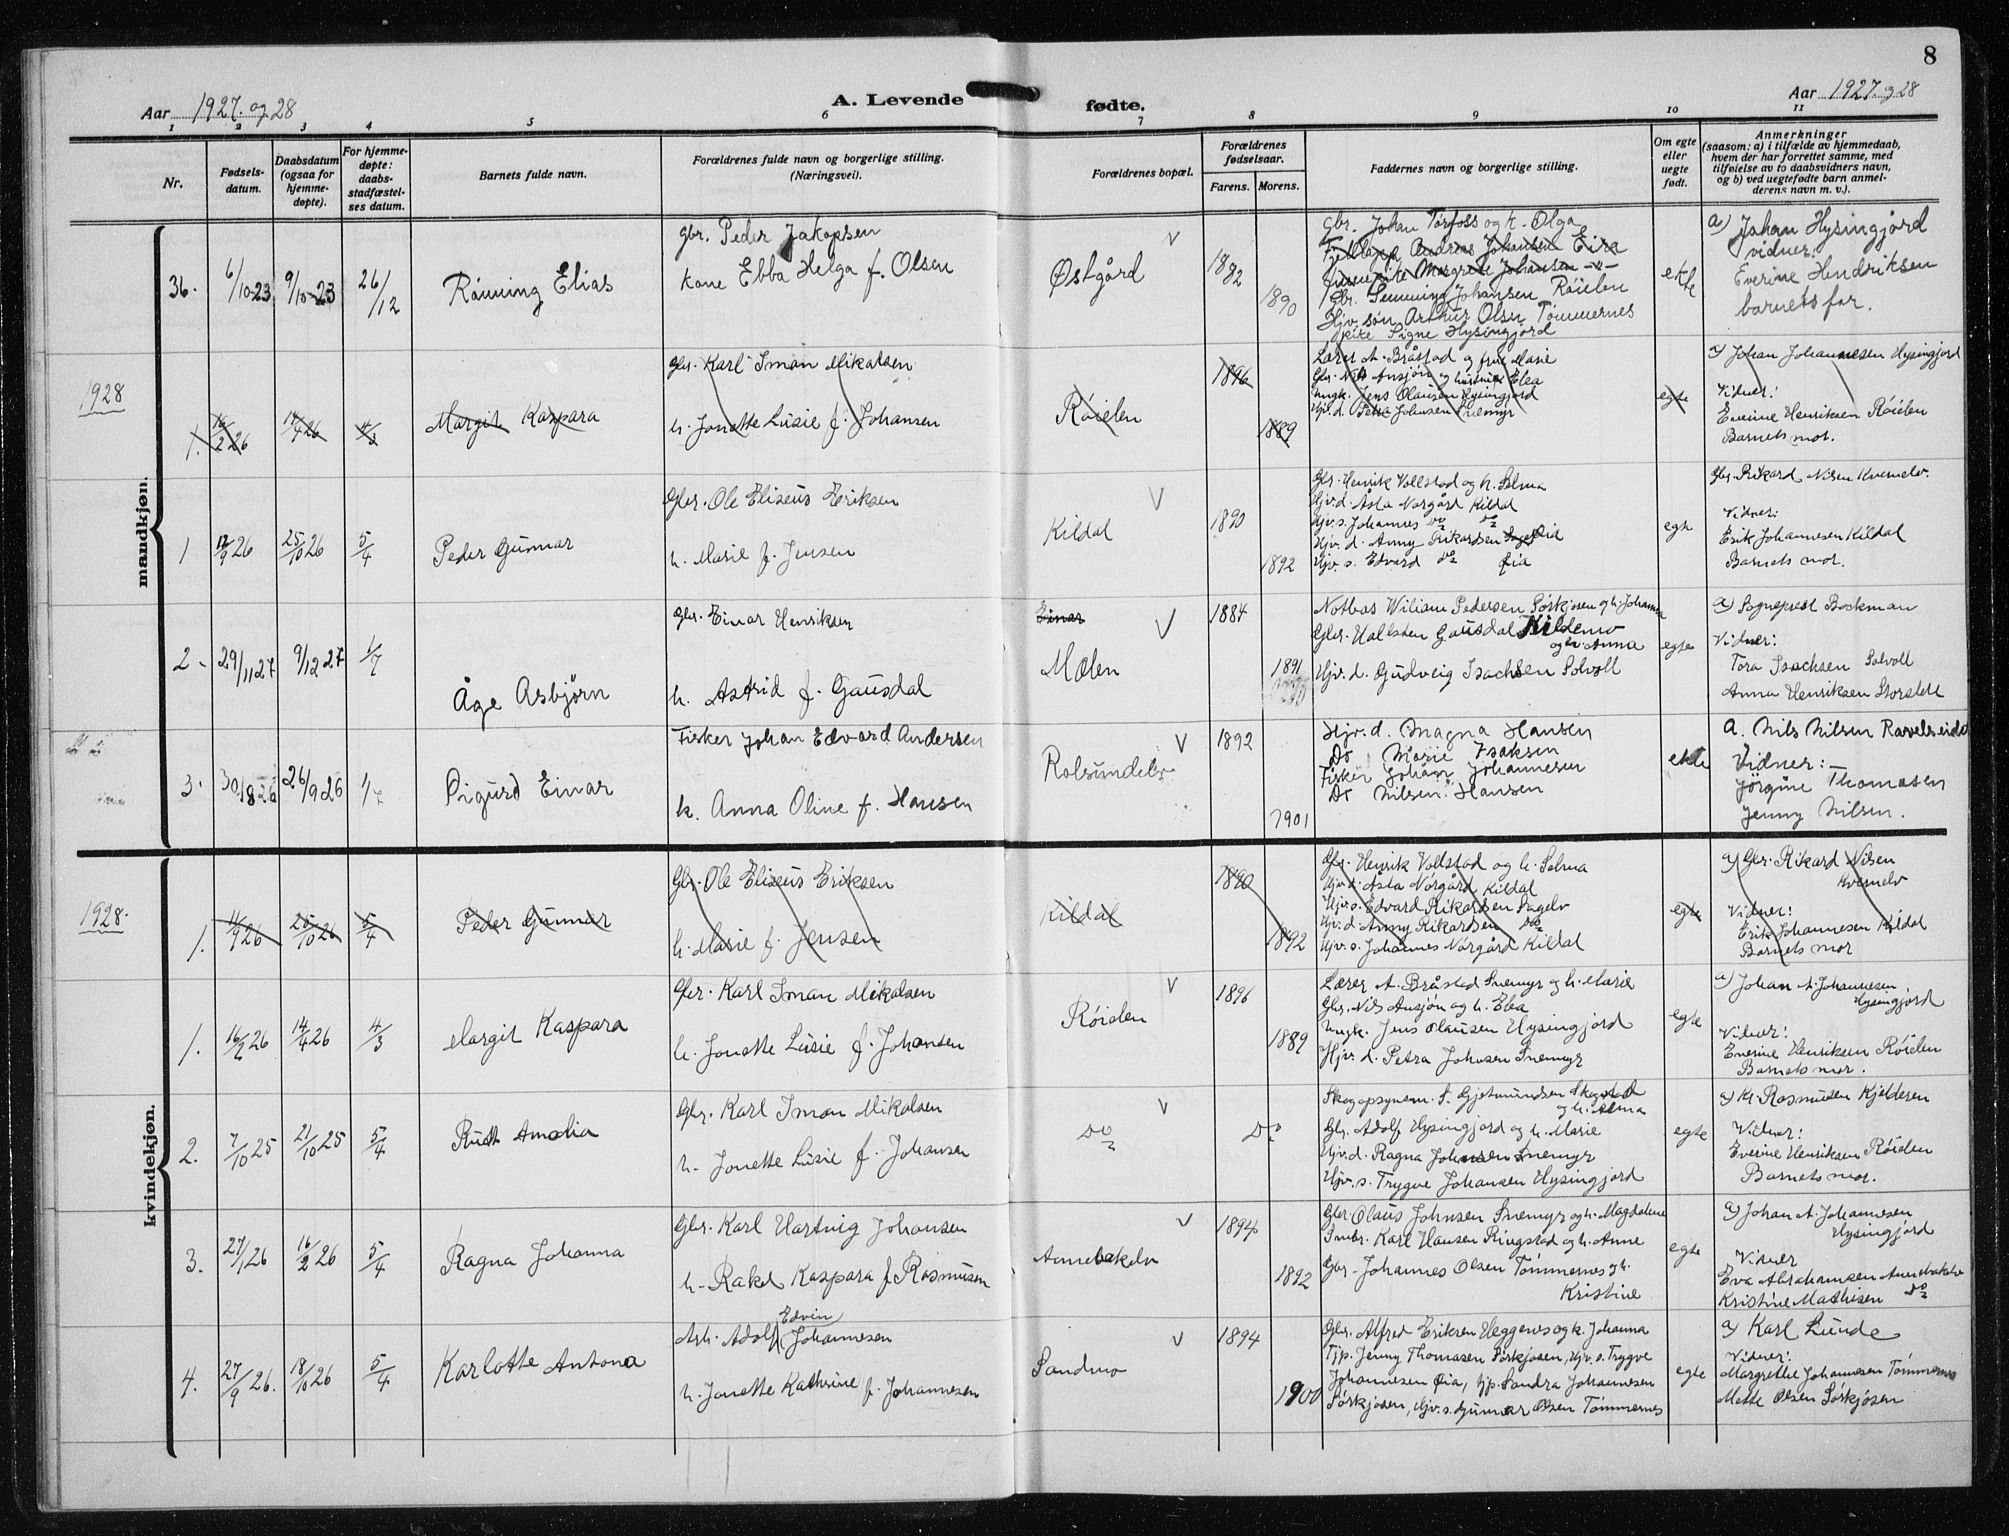 8
Aar 1927. og 28
A. Levende fødte.
Aar 1927. og 28
1 2 3 4 5 6 7 8 9 10 11
Nr.
Fødsels-
datum.
Daabsdatum
(ogsaa for
hjemme-
døpte).
For hjemme-
døpte:
daabs-
stadfæstel-
ses datum.
Barnets fulde navn.
Forældrenes fulde navn og borgerlige stilling.
(Næringsvei).
Forældrenes bopæl.
Forældrenes
fødselsaar.
Farens. Morens.
Faddernes navn og borgerlige stilling.
Om egte
eller
uegte
født.
Anmerkninger
(saasom: a) i tilfælde av hjemmedaab,
hvem der har forrettet samme, med
tilføielse av to daabsvidners navn,
og b) ved uegtefødte barn anmel-
derens navn m. v.).
mandkjøn.
36. 6/10-23 9/10-23 26/12
Rönning Elias
Gbr. Peder Jakopsen
kone Ebba Helga f. Olsen
Østgård
1892
1890
Gbr. Johan Torfoss og k. Olga
Fjellapp Andreas Johansen Eira
Margrete Johansen
Gbr. Hemming Johansen Röielen
Hjv. søn Arthur Olsn Tömmernes
pike Signe Hysingjord
ekte
a) Johan Hysingjörd
vidner:
Everine Hendriksen
barnets far.
1928
1. 16/2 26 14/4 26 4/3
Margit Kaspara
Gbr. Karl Iman Mikalsen
h. Jonette Lusie f. Johansen
Röielen
1896
1889
Lærer A. Bråstad og frue Marie
Gbr. Nils Ansjön og hustru Elea
Ungk. Jens Olausen Hysingjord
Hjv. d. Petra Johnsen Snemyr
egte
a) Johan Johannesen Hysingjord
Vidner:
Everine Henriksen Röielen
Barnets mor.
1 12/9 26 25/10 26 5/4
Peder Gunnar
Gbr. Ole Eliseus Eriksen
h. Marie f. Jensen
Kildal
1890
1892
Gbr. Henrik Vollstad og h. Selma
Hjv. d. Åsta Norgård Kildal
Hjv. s. Johannes do do
Hjv. d. Anny Rikardsen Øia
Hjv. s. Edvard do Øia
egte
Gbr. Rikard Nilsen Kvernelv.
Vidner:
Erik Johannesen Kildal
Barnets mor.
2. 29/11 27 9/12 27 1/7
Åge Asbjørn
Gbr. Einar Henriksen
h. Astrid f. Gausdal
Einar
Mælen
1884
1891
Notbas Wiliam Pedersen Sörkjosen og h. Johanna
Gbr. Hallsten Gausdal Kildemo
og h. Anna
Hjv. d. Gudveig Isachsen Solvoll
egte
a) Sogneprest Bockman
Vidner:
Tora Isachsen Solvoll
Anna Henriksen Storslett
3. 30/8 26 26/9 26 1/7
Sigurd Einar
Fisker Johan Edvard Andersen
k. Anna Oline f. Hansen
Rolsundelv
1892
1901
Hjv. d. Magna Hansen
Do Marie Isaksen
Fisker Johan Johannesen
Do Nilsen Hansen
ekte
A. Nils Nilsen Ravelseidet
Vidner:
Jörgine Thomasen
Jenny Nilsen.
kvindekjøn.
1928.
1. 11/9 26 25/10 26 5/4
Peder Gunnar
Gbr. Ole Eliseus Eriksen
h. Marie f. Jensen
Kildal
1890
1892
Gbr. Henrik Vollstad og h. Selma
Hjv. d. Åsta Norgård Kildal
Hjv. s. Edvard Rikardsen Sagelv
Hjv. d. Anny Rikardsen do
Hjv. s. Johannes Norgård Kildal
egte
a) Gbr. Rikard Nilsen
Kvernelv
Vidner:
Erik Johannesen Kildal
Barnets mor
1. 16/2 26 14/4 26 4/3
Margit Kaspara
Gbr. Karl Iman Mikalsen
h. Jonette Lusie f. Johansen
Röielen
1896
1889
Lærer A. Bråstad Snemyr og h. Marie
Gbr. Nils Ansjön og h. Elea
Ungk. Jens Olausen Hysingjord
Hjv. d. Petra Johnsen Snemyr
egte
a) Johan A. Johannesen
Hysingjord
Vidner:
Everine Henriksen Röielen
Barnets mor.
2. 7/10 25 21/10 25 5/4
Rudt Amalia
Gbr. Karl Iman Mikalsen
h. Jonette Lusie f. Johansen
Do
Do
Skogopsynsm. S. Gjetmundsen Skogstad
og h. Alma
Gbr. Adolf Hysingjord og h. Marie
Hjv. d. Ragna Johansen Snemyr
Hjv. s. Trygve Johansen Hysingjord
egte
a) Kr. Rasmusen Kjelderen
Vidner:
Everine Henriksen Röielen
Barnets mor.
3. 27/1 26 16/2 26 5/4
Ragna Johanna
Gbr. Karl Hartvig Johansen
h. Rakel Kaspara f. Rasmusen
Annebakelv
1894
1892
Gbr. Olaus Johnsen Snemyr og h. Magdalene
Småbr. Karl Hansen Ringstad og h. Anne
Gbr. Johannes Olsen Tömmernes og h.
Kristine
egte
a) Johan A. Johannesen
Hysingjord
Vidner
Eva Abrahamsen Annebakelv
Kristine Mathisen do
4. 27/9 26. 18/10 26 5/4
Karlotte Antona
Edvin
Arb. Adolf Johannesen
h. Jonette Kathrine f. Johannesen
Sandmo
1894
1900
Gbr. Alfred Eriksen Heggenes og k. Johanna
Tjp. Jenny Thomasen Sörkjosen, Hjv. s. Trygve
Johannesen Øia, tjp. Sandra Johannesen
Sörkjosen, Hjv. s. Gunnar Olsen Tömmernes
egte
a) Karl Lunde
Vidner:
Margrethe Johannesen Tömmernes
Mette Olsen Sörkjosen